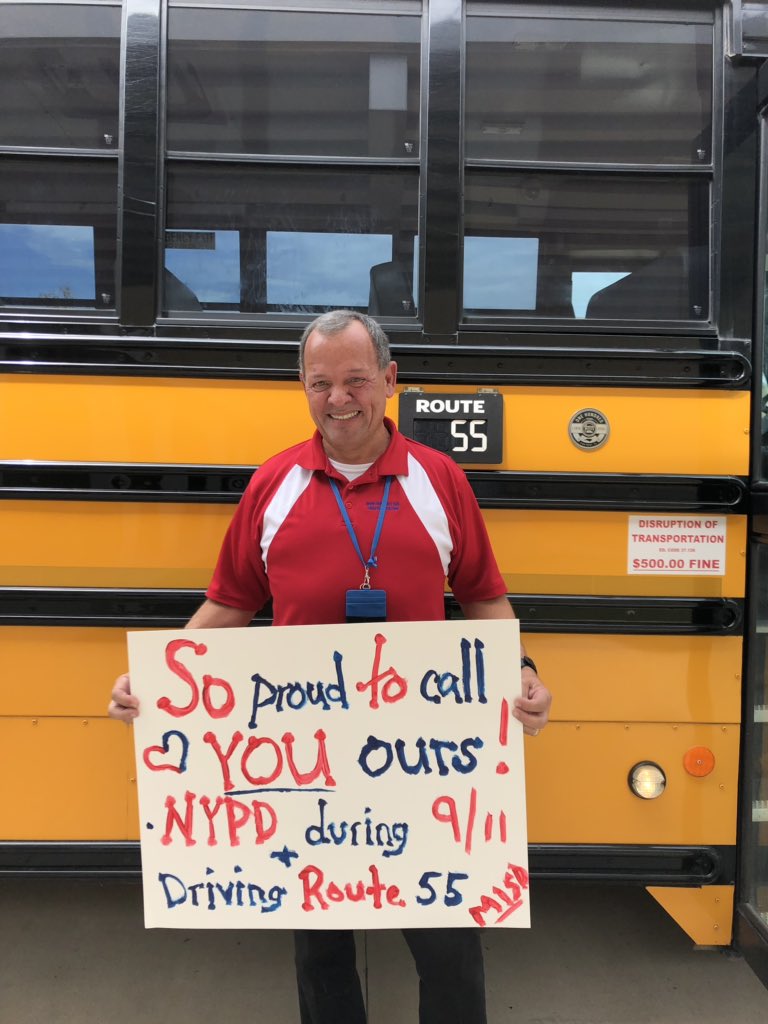 ROUTE
55
DISRUPTION OF
TRANSPORTATION
$500.00 FINE
So proud to call
YOU ours!
NYPD during 9/11
+
Driving Route 55
MISD